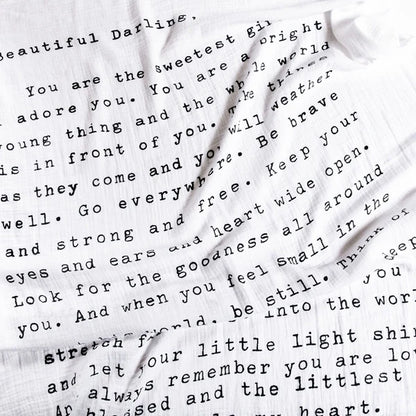 Beautiful Darling,
You are the sweetest
adore you. You are a bright
young thing and the whole world
is in front of you. things
as they come and you will weather
well. Go everywhere. Be brave
and strong and free. Keep your
eyes and ears and heart wide open.
Look for the goodness all around
you. And when you feel small in the
be still. Think of
deep
you
into the
stretch
and let your little light
always remember you are
and the littlest
my heart.